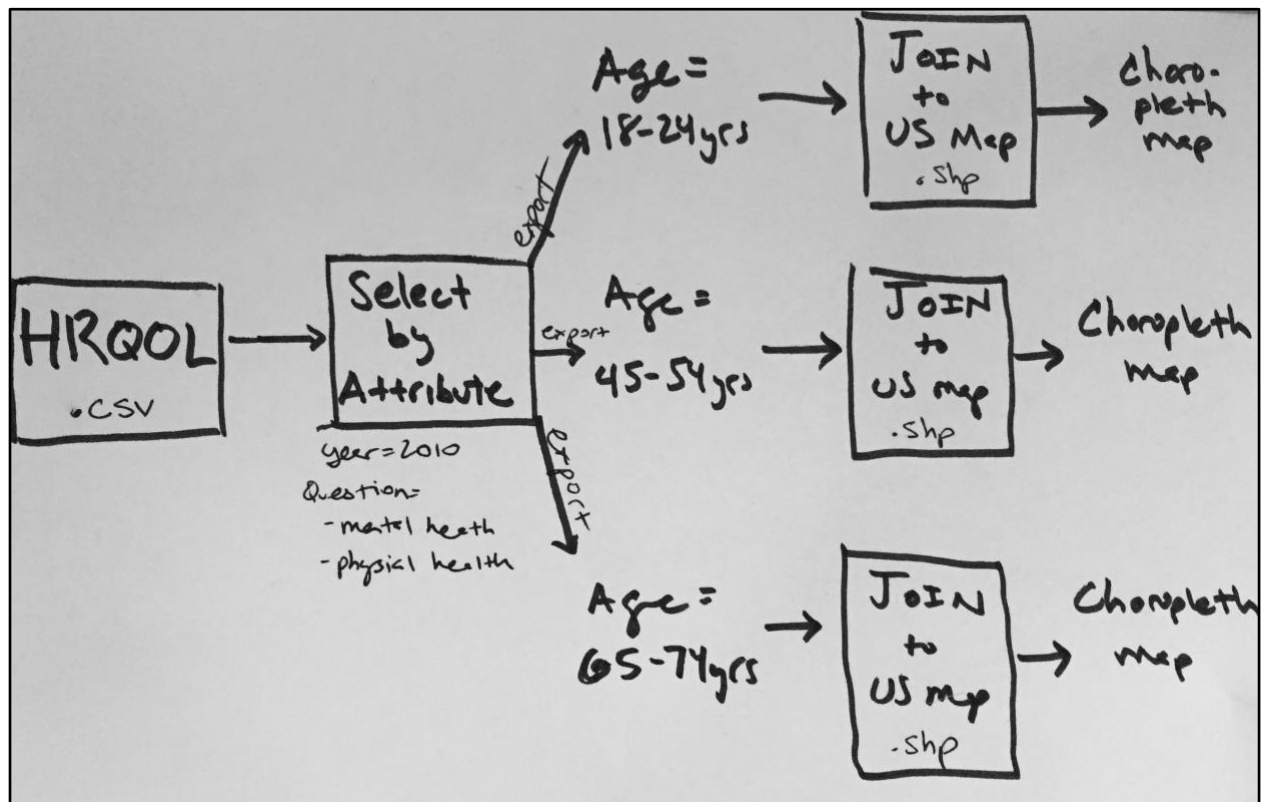 HRQOL
.CSV
Select
by
Attribute
year=2010
Question=
- mental heath
- physial health
export
Age =
18-24yrs
JOIN
to
US Map
.shp
Choro-
pleth
map
export
Age =
45-54yrs
JOIN
to
US map
.shp
Choropleth
map
export
Age =
65-74yrs
JOIN
to
US map
.shp
Choropleth
map